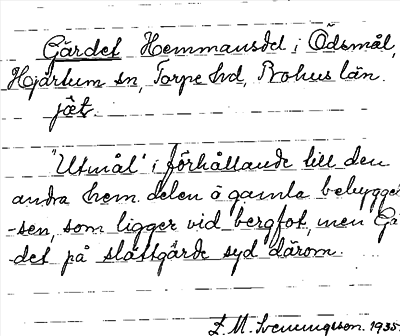 Gärdet Hemmansdel i Ödsmål,
Hjärtum sn, Torpe hd, Bohus län.
jät.
"Utmål" i förhållande till den
andra hem. delen å gamla bebygger
-sen, som ligger vid bergfot, men Gä
-det på slättgärde syd därom.
E. M. Svenningsson. 1935